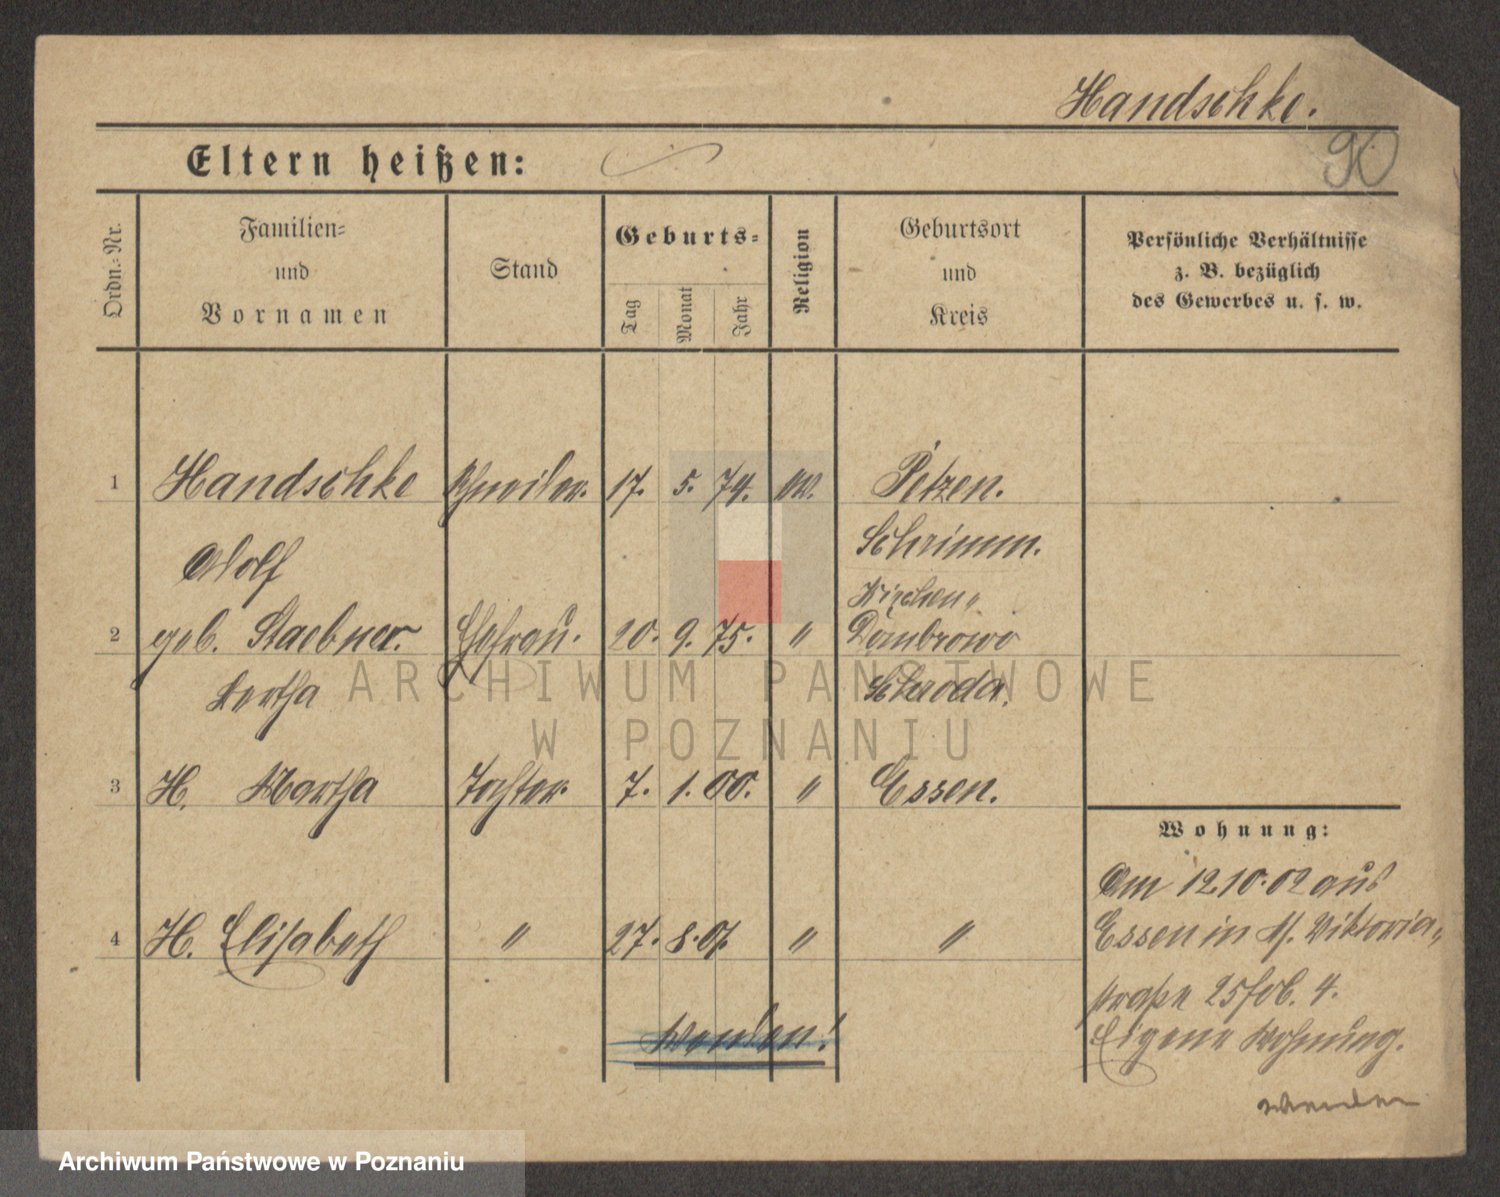 Handschke.
90
Eltern heißen:
Ordn.-Nr.
Familien-
und
Vornamen
Stand
Geburts-
Tag
Monat
Jahr
Religion
Geburtsort
und
Kreis
Persönliche Verhältnisse
z. B. bezüglich
des Gewerbes u. s. w.
1 Handschke Schneider. 17. 5. 74. ev. Petzen.
Adolf Schrimm.
Kirchen-
2 geb. Staebner. Ehefrau. 20. 9. 75. " Dombrowo
Bertha Schroda.
3 H. Martha Tochter. 7. 1. 00. " Essen.
4 H. Elisabeth " 27. 8. 01. " "
Wenden!
Wohnung:
Am 12.10.02 aus
Essen in Viktoria-
straße 25 4.
Eigene Wohnung.
wenden
ARCHIWUM PAŃSTWOWE
W POZNANIU
Archiwum Państwowe w Poznaniu